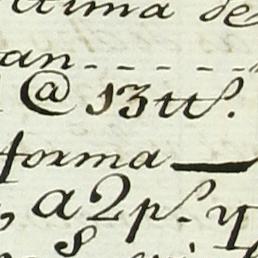 ctima de
an
@ 13 tt⁵.
forma
, a 2 p⁵. y